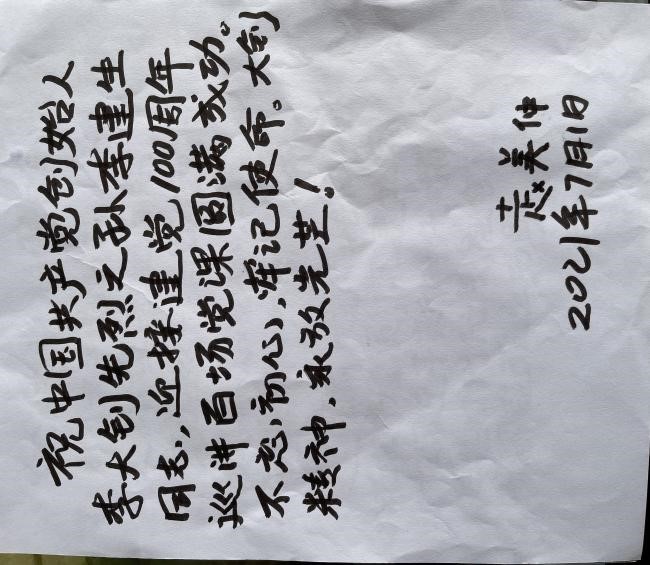 祝中国共产党创始人
李大钊先烈之孙李建生
同志,迎接建党100周年
巡讲百场党课圆满成功。
不忘初心,牢记使命。大钊
精神,永放光芒!
赵美仲
2021年7月1日